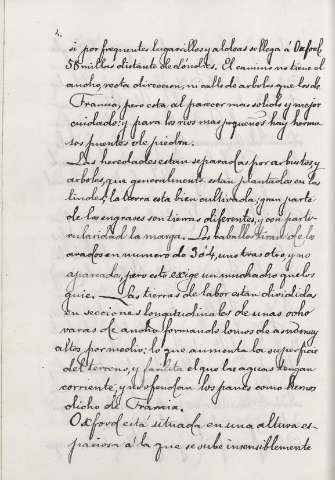 2.
si por frequentes lugarillos y aldeas se llega á Oxford
58 millas distante de Lóndres. El camino no tiene el
ancho, recta direccion, ni calle de arboles que los de
Francia, pero está al parecer mas sólido y mejor
cuidado: y para los rios mas pequeños hay hermo-
sos puentes de piedra.
Las heredades estan separadas por arbustos y
arboles, que generalmente estan plantados en las
lindes; la tierra esta bien cultivada; gran parte
de los engrases son tierras diferentes, y con parti-
cularidad la marga. Los caballos tiran de los
arados en numero de 3 ó 4, uno tras otro y no
apareados, pero esto exige un muchacho que los
guie. — Las tierras de labor estan divididas
en secciones longitudinales de unas ocho
varas de ancho formando lomos de asno muy
altos por medio; lo que aumenta la superficie
del terreno, y facilita el que las aguas tengan
corriente, y no ofendan los panes como hemos
dicho de Francia.
Oxford está situada en una altura es-
paciosa á la que se sube insensiblemente